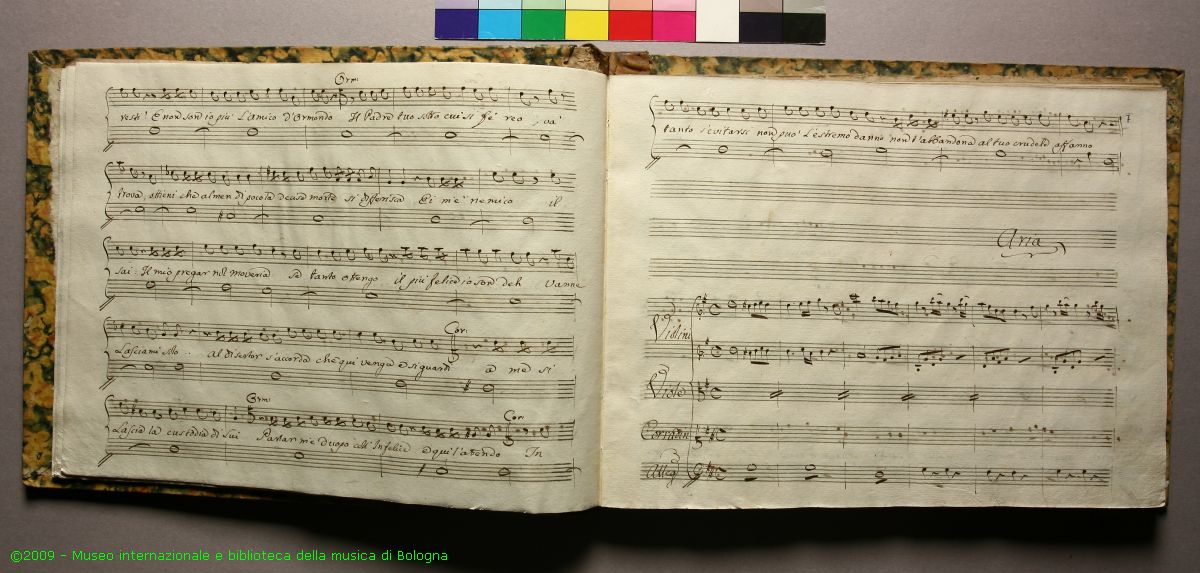 Ormi
resti! E non son io più L'amico d'Ormondo Il Padre tuo sotto cui si fè reo, va'
trova, ottieni che almen di poco la de sua morte si differisca Ei m'è nemico il
sai. Il mio pregar nol moveria se tanto ottengo il più felice io son deh Vanne
Cori
Lasciami sola .. al disertor s'accorda che qui venga e si guardi a me si
Ormi Cori
Lascia la custodia di lui Parlar m'è d'uopo coll'Infelice e qui l'attendo In
tanto s'evitarsi non può L'estremo danno non l'abbandona al tuo crudele affanno
Aria
Violini
Viole
Corradin
Alleg
©2009 - Museo internazionale e biblioteca della musica di Bologna